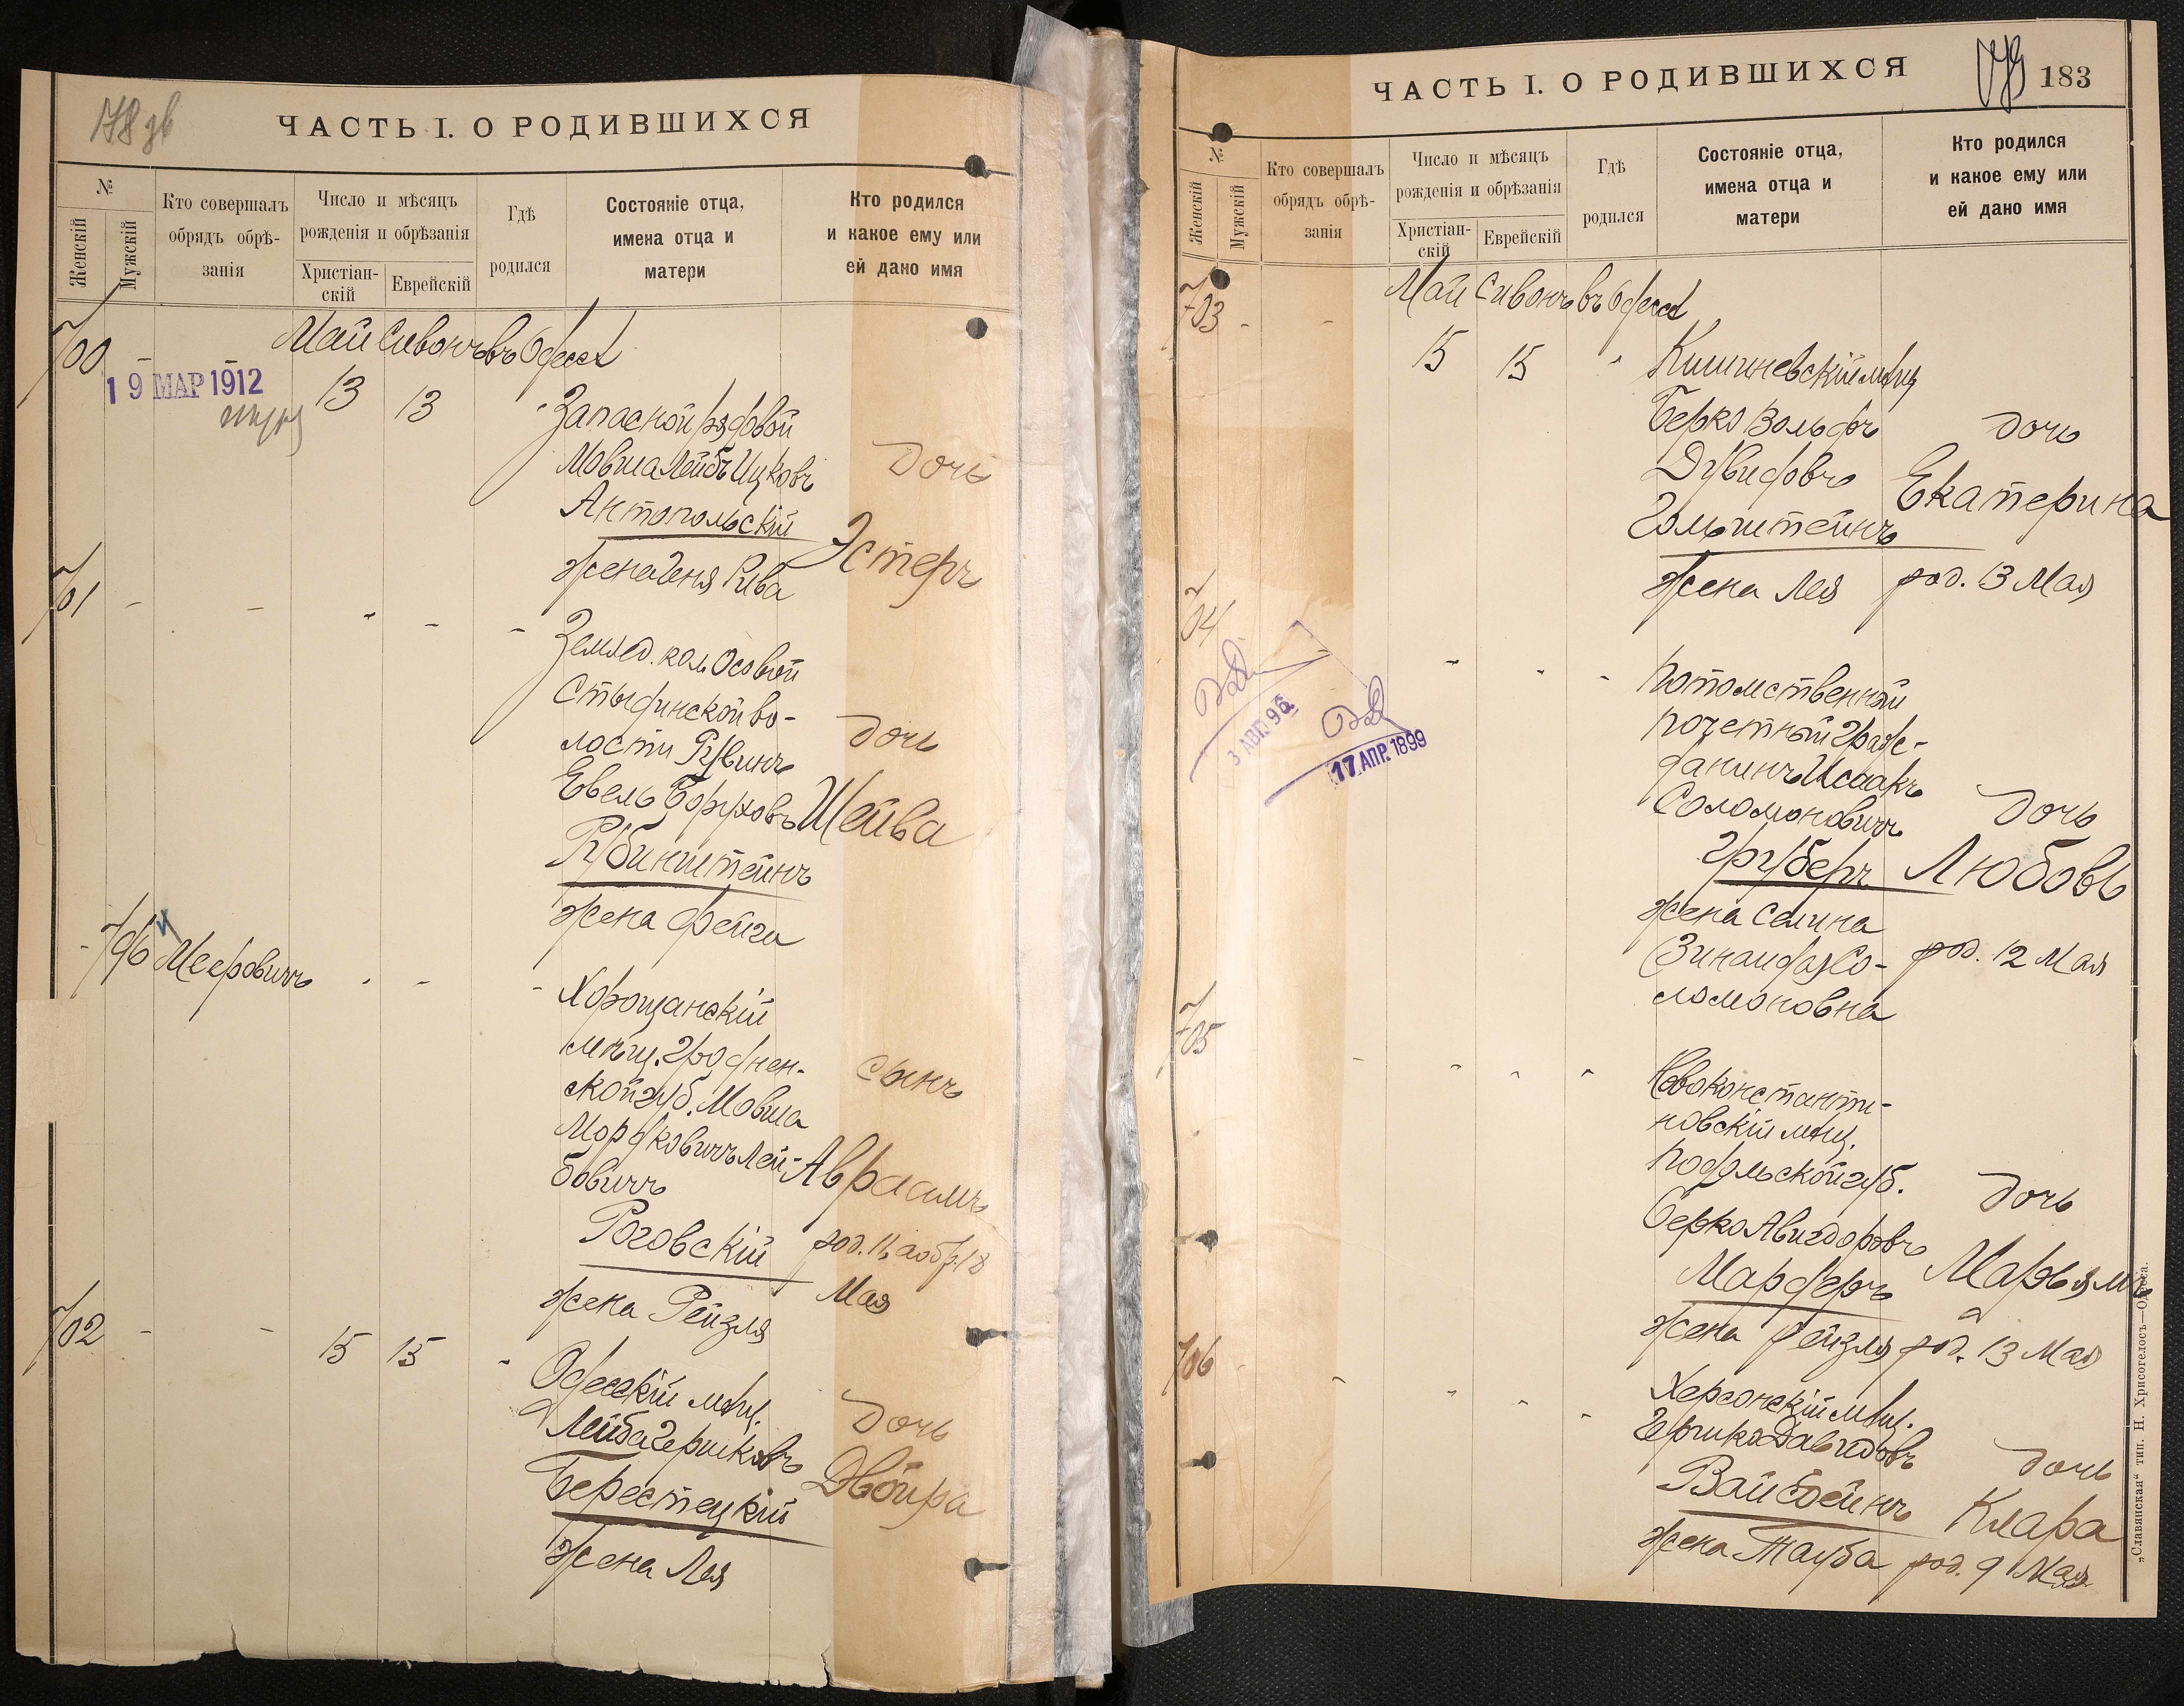 ЧАСТЬ I. О РОДИВШИХСЯ
№
Женскій
Мужскій
Кто совершалъ
обрядъ обрѣ-
занія
Число и мѣсяцъ
рожденія и обрѣзанія
Христіан-
скій
Еврейскій
Гдѣ
родился
Состояніе отца,
имена отца и
матери
Кто родился
и какое ему или
ей дано имя
700
Май Сивонъ въ Одессѣ
19 МАР 1912
13 13
Запасной рядовой
Мовша Лейбъ Ицковъ
Антопольскій
жена Геня Рива
дочь
Эстеръ
701
Землед. кол. Осовой
Стыдинской во-
лости Рувинъ
Евель Боруховъ
Рубинштейнъ
жена Фейга
дочь
Шейва
796 Мееровичъ
Хорощанскій
мѣщ. Гроднен-
ской губ. Мовша
Мордковичъ Лей-
бовичъ
Роговскій
жена Рейзля
сынъ
Авраамъ
род. 11, а обр. 18
Мая
702
15 15
Одесскій мѣщ.
Лейба Гершковъ
Берестецкій
жена Лея
дочь
Двойра
ЧАСТЬ I. О РОДИВШИХСЯ
183
№
Женскій
Мужскій
Кто совершалъ
обрядъ обрѣ-
занія
Число и мѣсяцъ
рожденія и обрѣзанія
Христіан-
скій
Еврейскій
Гдѣ
родился
Состояніе отца,
имена отца и
матери
Кто родился
и какое ему или
ей дано имя
703
Май Сивонъ въ Одессѣ
15 15
Кишиневскій мѣщ
Берко Вольфъ
Дувидовъ
Гольштейнъ
жена Лея
дочь
Екатерина
род. 13 Мая
704
3 АВГ. 96
17 АПР. 1899
Потомственный
почетный граж-
данинъ Исаакъ
Соломоновичъ
Груберъ
жена Селина
(Зинаида) Со-
ломоновна
дочь
Любовь
род. 12 Мая
705
Новоконстанти-
новскій мѣщ.
Подольской губ.
Берко Авигдоровъ
Мардеръ
жена Рейзля
дочь
Марьямъ
род. 13 Мая
706
Херсонскій мѣщ.
Гершко Давидовъ
Вайсбейнъ
жена Тауба
дочь
Клара
род. 9 Мая
„Славянская“ тип. Н. Хрисогелосъ—Одесса.